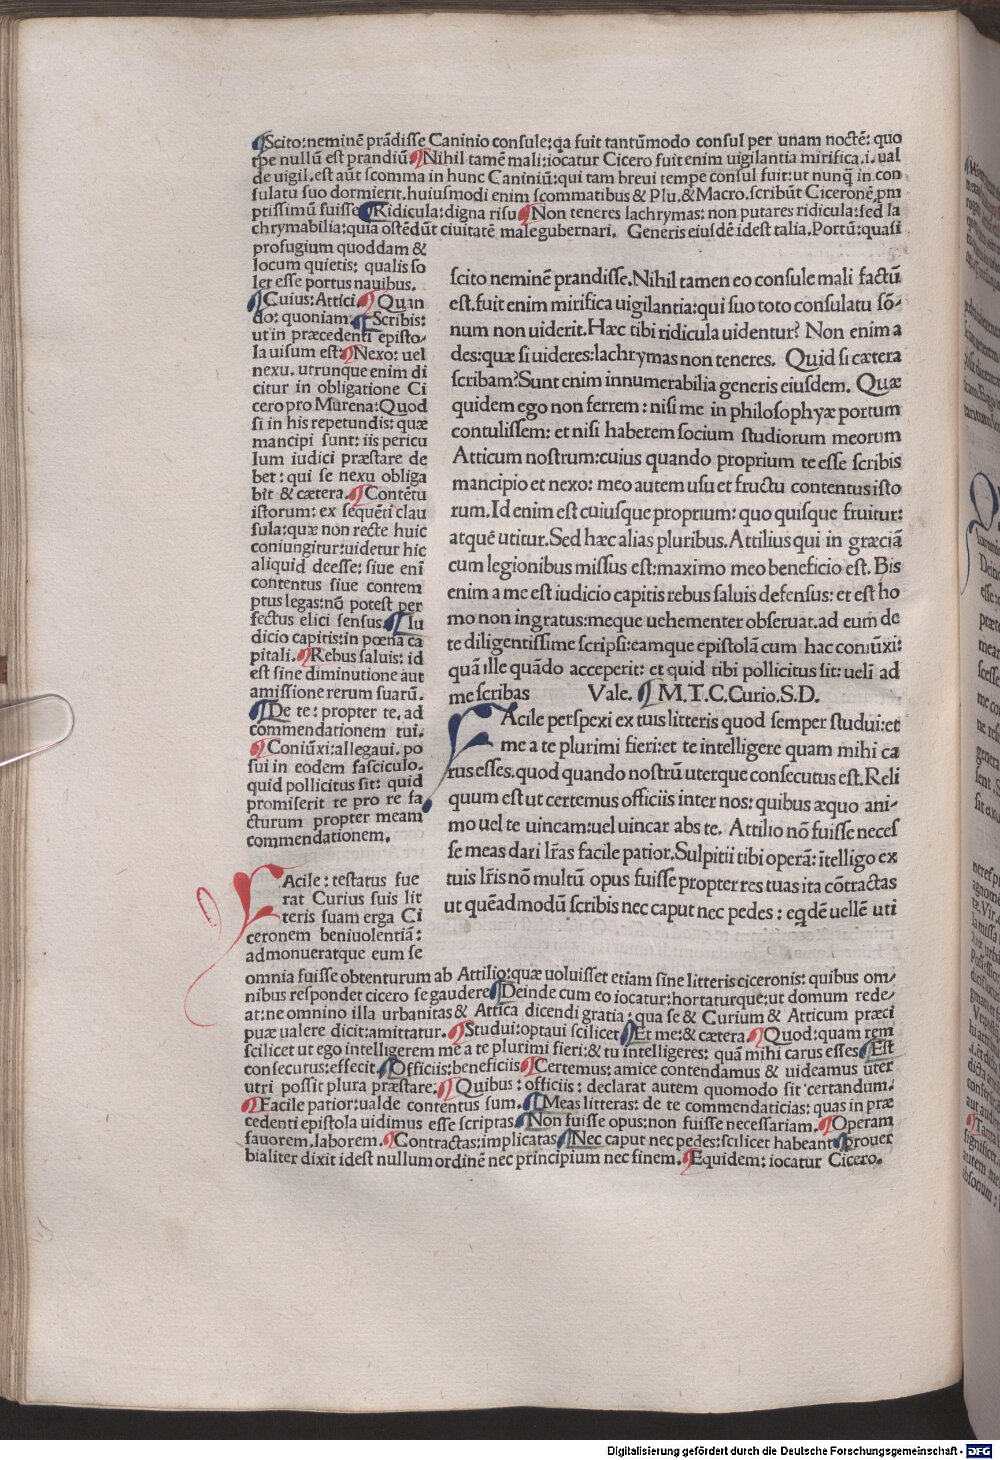 ¶Scito:neminē prādisse Caninio consule:qa fuit tantūmodo consul per unam noctē: quo
tpe nullū est prandiū ¶Nihil tamē mali:iocatur Cicero fuit enim uigilantia mirifica.i.ual
de uigil.est aūt scomma in hunc Caniniū:qui tam breui tempe consul fuit:ut nunq̄ in con
sulatu suo dormierit.huiusmodi enim scommatibus & Plu.& Macro.scribūt Ciceronē,pm
ptissimū fuisse ¶Ridicula:digna risu ¶Non teneres lachrymas: non putares ridicula:sed la
chrymabilia:quia ostēdūt ciuitatē malegubernari. Generis eiusdē idest talia.Portū:quasi
profugium quoddam &
locum quietis: qualis so
ler esse portus nauibus.
¶Cuius:Attici. ¶Quan
do: quoniam ¶Scribis:
ut in præcedenti episto-
la uisum est: ¶Nexo: uel
nexu. utrunque enim di
citur in obligatione Ci
cero pro Murena:Quod
si in his repetundis: quæ
mancipi sunt: iis pericu
lum iudici præstare de
bet: qui se nexu obliga
bit & cætera. ¶Contētu
istorum: ex sequēti clau
sula:quæ non recte huic
coniungitur:uidetur hic
aliquid deesse: siue eni
contentus siue contem
ptus legas:nō potest per
fectus elici sensus. ¶Iu
dicio capitis:in pœna ca
pitali. ¶Rebus saluis: id
est sine diminutione aut
amissione rerum suarū.
¶De te: propter te, ad
commendationem tui.
¶Coniūxi:allegaui. po
sui in eodem fasciculo.
quid pollicitus sit: quid
promiserit te pro re fa
cturum propter meam
commendationem.
scito neminē prandisse.Nihil tamen eo consule mali factū
est.fuit enim mirifica uigilantia:qui suo toto consulatu sō-
num non uiderit.Hæc tibi ridicula uidentur? Non enim a
des:quæ si uideres:lachrymas non teneres. Quid si cætera
scribam?Sunt enim innumerabilia generis eiusdem. Quæ
quidem ego non ferrem: nisi me in philosophyæ portum
contulissem: et nisi haberem socium studiorum meorum
Atticum nostrum:cuius quando proprium te esse scribis
mancipio et nexo: meo autem usu et fructu contentus isto
rum.Id enim est cuiusque proprium: quo quisque fruitur:
atquē utitur.Sed hæc alias pluribus.Attilius qui in græciā
cum legionibus missus est:maximo meo beneficio est. Bis
enim a me est iudicio capitis rebus saluis defensus: et est ho
mo non ingratus:meque uehementer obseruat.ad eum de
te diligentissime scripsi:eamque epistolā cum hac coniūxi:
quā ille quādo acceperit: et quid tibi pollicitus sit: ueli ad
me scribas Vale. ¶M.T.C.Curio.S.D.
FAcile perspexi ex tuis litteris quod semper studui:et
me a te plurimi fieri:et te intelligere quam mihi ca
rus esses.quod quando nostrū uterque consecutus est.Reli
quum est ut certemus officiis inter nos: quibus æquo ani-
mo uel te uincam:uel uincar abs te. Attilio nō fuisse neces
se meas dari lr̄as facile patior.Sulpitii tibi operā: ītelligo ex
tuis lr̄is nōn multū opus fuisse propter res tuas ita cōtractas
ut quēadmodū scribis nec caput nec pedes : eqdē uellē uti
FAcile: testatus fue
rat Curius suis lit
teris suam erga Ci
ceronem beniuolentiā:
admonueratque eum se
omnia fuisse obtenturum ab Attilio:quæ uoluisset etiam sine litteris ciceronis: quibus om-
nibus respondet cicero se gaudere ¶Deinde cum eo iocatur:hortaturque:ut domum rede-
at:ne omnino illa urbanitas & Attica dicendi gratia:qua se & Curium & Atticum præci
puæ ualere dicit:amittatur. ¶Studui:optaui scilicet ¶Et me:& cætera. ¶Quod:quam rem
scilicet ut ego intelligerem me a te plurimi fieri:& tu intelligeres: quā mihi carus esses ¶Est
consecutus:effecit. ¶Officiis:beneficiis ¶Certemus: amice contendamus & uideamus uter
utri possit plura præstare. ¶Quibus: officiis: declarat autem quomodo sit certandum.
¶Facile patior:ualde contentus sum. ¶Meas litteras: de te commendaticias: quas in præ
cedenti epistola uidimus esse scriptas ¶Non fuisse opus:non fuisse necessariam. ¶Operam
fauorem.laborem. ¶Contractas:implicatas ¶Nec caput nec pedes:scilicet habeant ¶prouer
bialiter dixit idest nullum ordinē nec principium nec finem. ¶Equidem: iocatur Cicero.
Digitalisierung gefördert durch die Deutsche Forschungsgemeinschaft - DFG